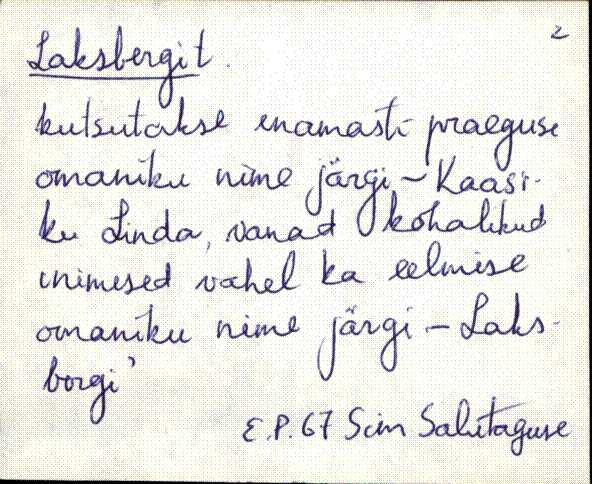 2
Laksbergit.
kutsutakse enamasti praeguse
omaniku nime järgi – Kaasi-
ku Linda, vanad kohalikud
inimesed vahel ka eelmise
omaniku nime järgi – Laks-
borgi'
E.P. 67 Sim Salutaguse